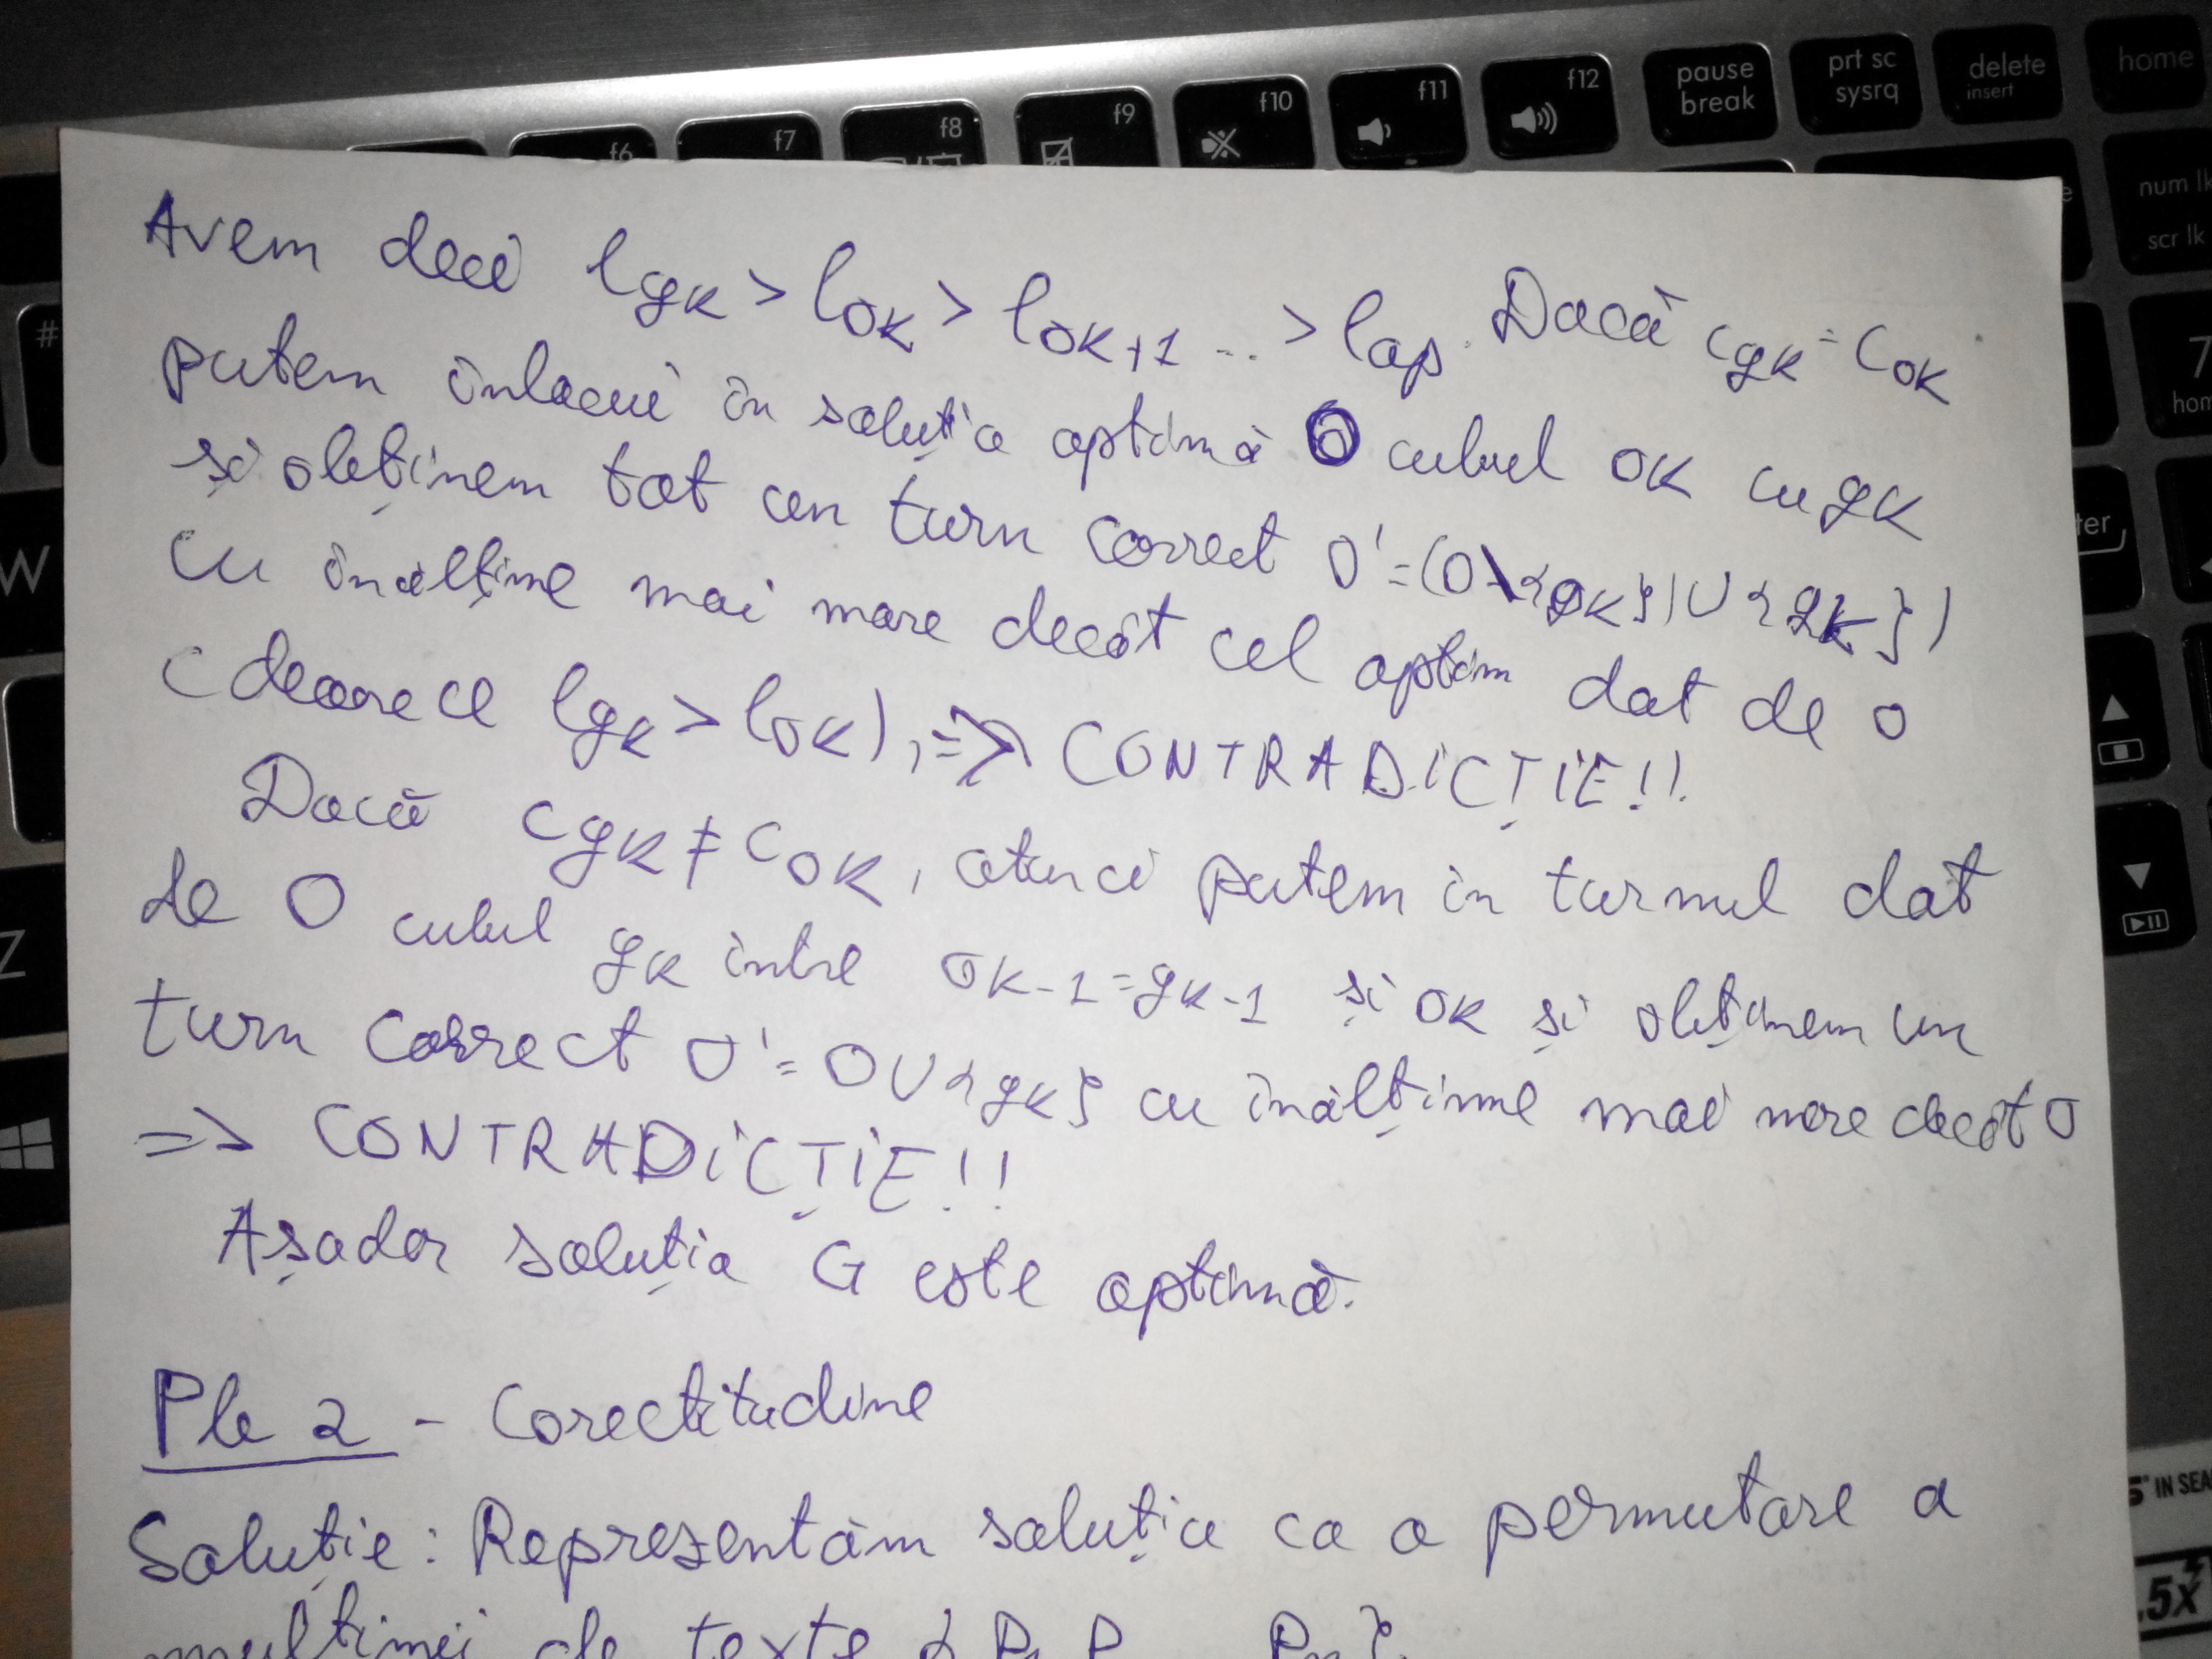 f6 f7 f8 f9 f10 f11 f12 pause break prt sc sysrq delete insert home
num lk scr lk
#
7 home
W
Z
Avem deci lgk > lok > lok+1 ... > lop. Dacă cgk = cok
putem înlocui în soluția optimă O cubul ok cu gk
și obținem tot un turn corect O' = (O \ {ok}) ∪ {gk})
cu înălțime mai mare decât cel optim dat de O
(deoarece lgk > lok), => CONTRADICȚIE!!
Dacă cgk ≠ cok, atunci putem în turnul dat
de O cubul gk între ok-1 = gk-1 și ok și obținem un
turn corect O' = O ∪ {gk} cu înălțime mai mare decât O
=> CONTRADICȚIE!!
Așadar soluția G este optimă.
Pb 2 - Corectitudine
Soluție: Reprezentăm soluția ca o permutare a
mulțimii de texte {P1 P